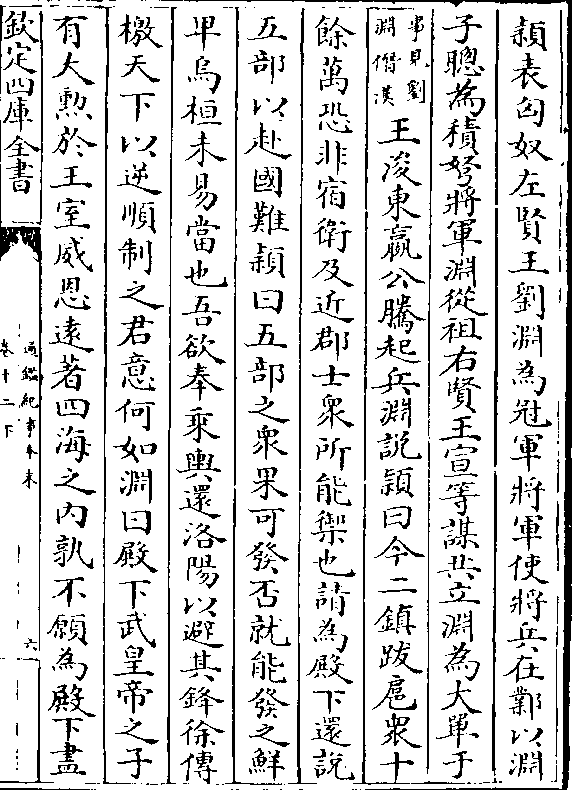 穎表匈奴左賢王劉淵為冠軍將軍使將兵在鄴以淵
子聰為積弩將軍淵從祖右賢王宣等謀共立淵為大單于
事見劉
淵僭漢
王浚東嬴公騰起兵淵説穎曰今二鎮跋扈衆十
餘萬恐非宿衛及近郡士衆所能禦也請為殿下還説
五部以赴國難穎曰五部之衆果可發否就能發之鮮
卑烏桓未易當也吾欲奉乘輿還洛陽以避其鋒徐傳
檄天下以逆順制之君意何如淵曰殿下武皇帝之子
有大勲於王室威恩逺著四海之内孰不願為殿下盡
欽定四庫全書
通鑑紀事本末
卷十二下
六